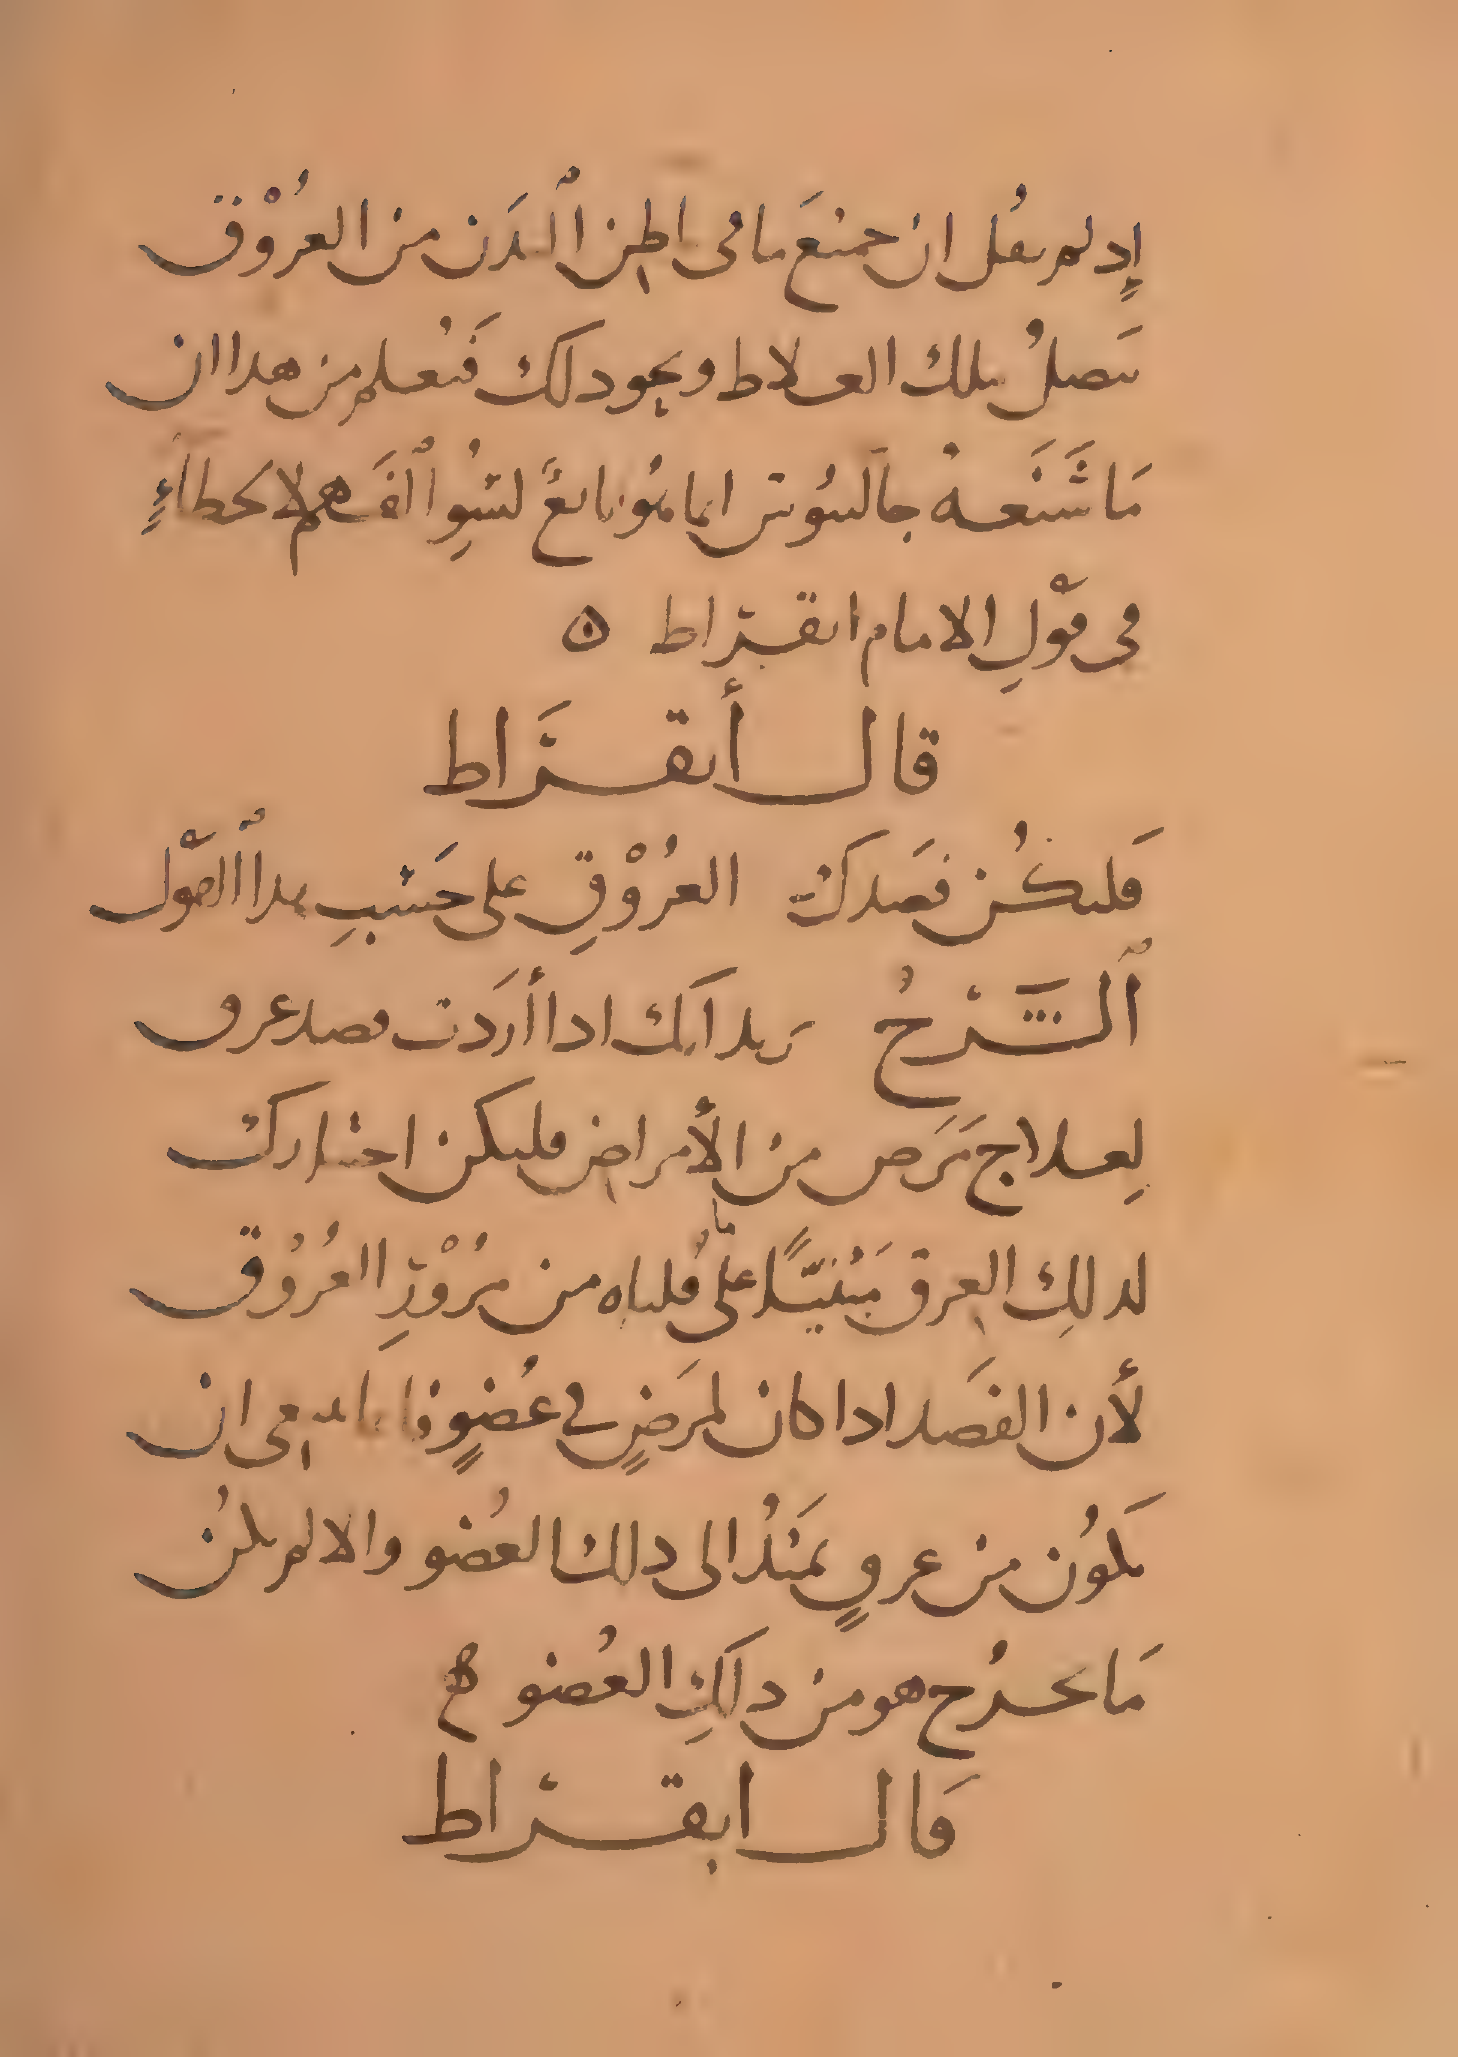 إذ لم يقل ان جميعَ ما في باطن ٱلبدَن من العُرُوْق
يتصلُ بتلك الغلاظ ونحو ذلك فَنُعلم من هذا ان
مَا شَنَّعهُ جالينوس انما هُو تابعٌ لسُوءِ ٱلفَهم لا لخطاءٍ
في قوْلِ الامام ابقراط ه
قال أبقرَاط
فَليكُن فصَدك العُرُوْقِ على حَسَبِ هذا ٱلقوْل
ٱلشَّرْحُ يريد انك اذا أردَت فصد عرق
لِعلاج مَرَض من الأمراض فليكن اختيارك
لذلكِ العرق مَبْنيًّا على ما قُلناه من مرُوْرِ العُرُوق
لأن الفصَد اذا كان لمرَضٍ في عُضوٍ فانما ينبغي ان
يَكوُن من عرقٍ يمَتدُ الى ذلك العُضو والا لم يكنُ
مَا يخرُج هو من ذلَكِ العُضو ه
قَال ابقراط